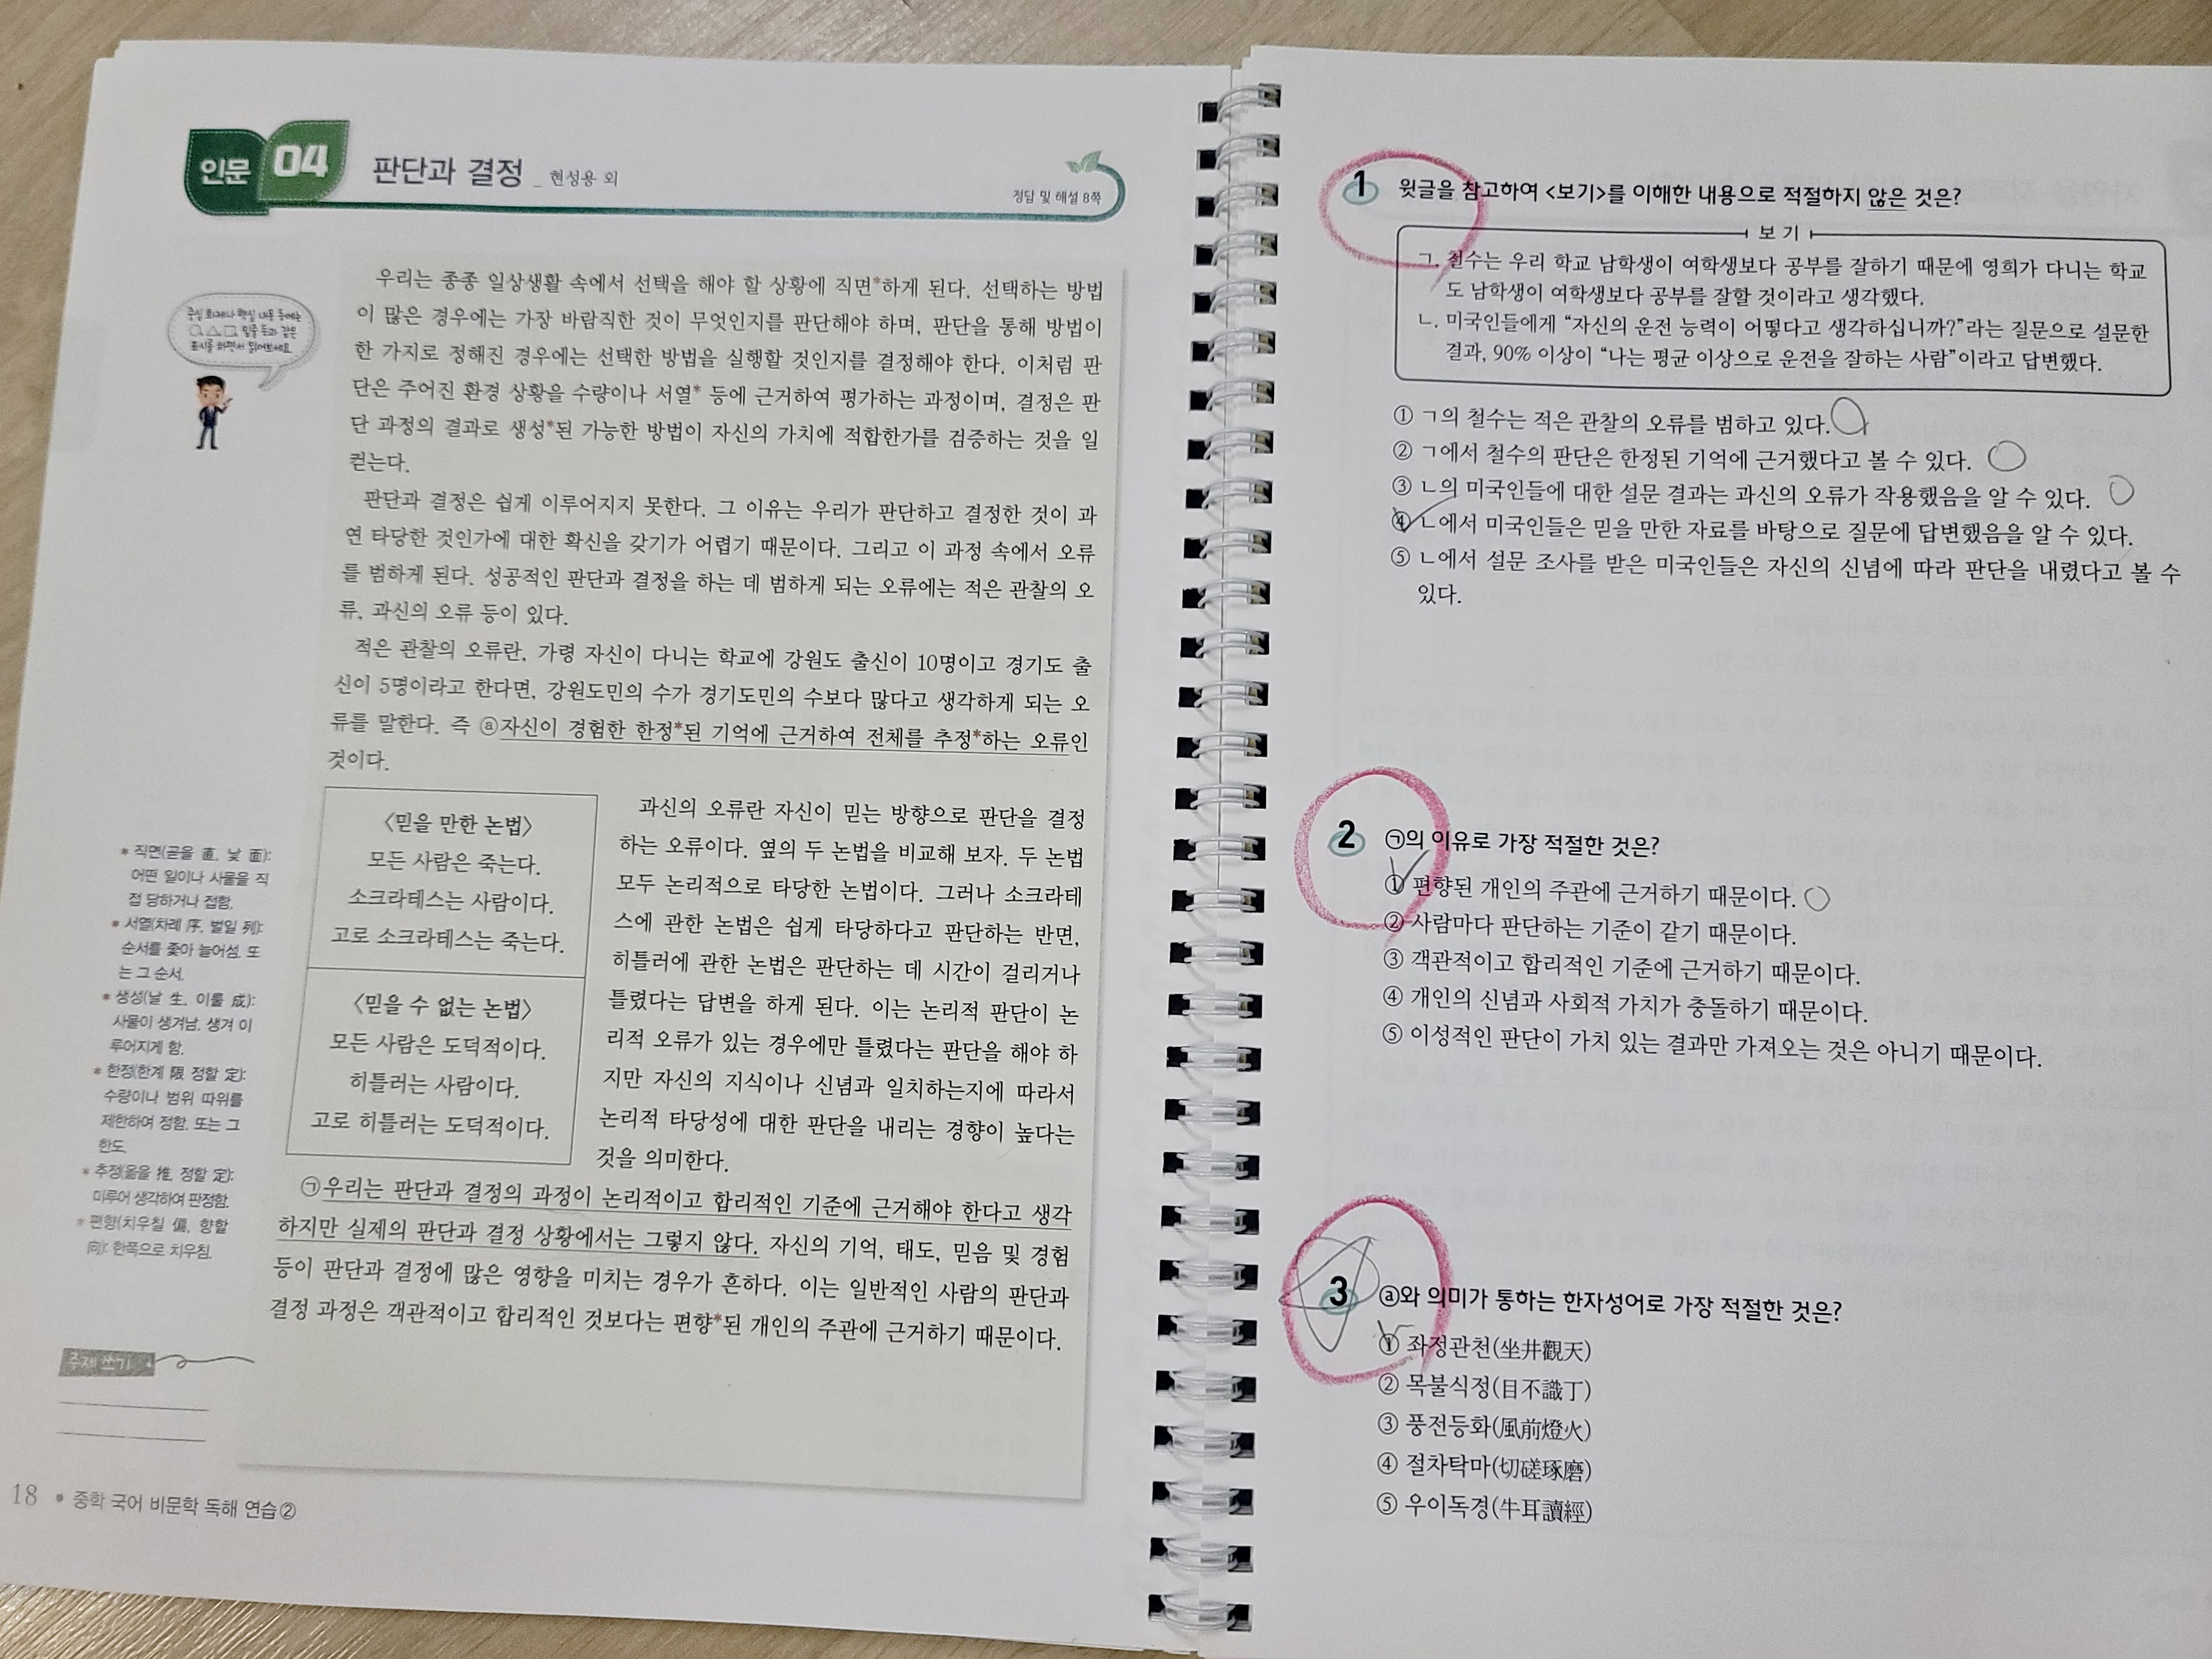 인문 04 판단과 결정 _ 현성용 외
정답 및 해설 8쪽
중심 화제나 핵심 내용 등에는
○, △, □, 밑줄 등과 같은
표시를 하면서 읽어보세요.
우리는 종종 일상생활 속에서 선택을 해야 할 상황에 직면*하게 된다. 선택하는 방법
이 많은 경우에는 가장 바람직한 것이 무엇인지를 판단해야 하며, 판단을 통해 방법이
한 가지로 정해진 경우에는 선택한 방법을 실행할 것인지를 결정해야 한다. 이처럼 판
단은 주어진 환경 상황을 수량이나 서열* 등에 근거하여 평가하는 과정이며, 결정은 판
단 과정의 결과로 생성*된 가능한 방법이 자신의 가치에 적합한가를 검증하는 것을 일
컫는다.
판단과 결정은 쉽게 이루어지지 못한다. 그 이유는 우리가 판단하고 결정한 것이 과
연 타당한 것인가에 대한 확신을 갖기가 어렵기 때문이다. 그리고 이 과정 속에서 오류
를 범하게 된다. 성공적인 판단과 결정을 하는 데 범하게 되는 오류에는 적은 관찰의 오
류, 과신의 오류 등이 있다.
적은 관찰의 오류란, 가령 자신이 다니는 학교에 강원도 출신이 10명이고 경기도 출
신이 5명이라고 한다면, 강원도민의 수가 경기도민의 수보다 많다고 생각하게 되는 오
류를 말한다. 즉 ⓐ자신이 경험한 한정*된 기억에 근거하여 전체를 추정*하는 오류인
것이다.
〈믿을 만한 논법〉
모든 사람은 죽는다.
소크라테스는 사람이다.
고로 소크라테스는 죽는다.
〈믿을 수 없는 논법〉
모든 사람은 도덕적이다.
히틀러는 사람이다.
고로 히틀러는 도덕적이다.
과신의 오류란 자신이 믿는 방향으로 판단을 결정
하는 오류이다. 옆의 두 논법을 비교해 보자. 두 논법
모두 논리적으로 타당한 논법이다. 그러나 소크라테
스에 관한 논법은 쉽게 타당하다고 판단하는 반면,
히틀러에 관한 논법은 판단하는 데 시간이 걸리거나
틀렸다는 답변을 하게 된다. 이는 논리적 판단이 논
리적 오류가 있는 경우에만 틀렸다는 판단을 해야 하
지만 자신의 지식이나 신념과 일치하는지에 따라서
논리적 타당성에 대한 판단을 내리는 경향이 높다는
것을 의미한다.
㉠우리는 판단과 결정의 과정이 논리적이고 합리적인 기준에 근거해야 한다고 생각
하지만 실제의 판단과 결정 상황에서는 그렇지 않다. 자신의 기억, 태도, 믿음 및 경험
등이 판단과 결정에 많은 영향을 미치는 경우가 흔하다. 이는 일반적인 사람의 판단과
결정 과정은 객관적이고 합리적인 것보다는 편향*된 개인의 주관에 근거하기 때문이다.
* 직면(곧을 直, 낯 面):
어떤 일이나 사물을 직
접 당하거나 접함.
* 서열(차례 序, 벌일 列):
순서를 좇아 늘어섬. 또
는 그 순서.
* 생성(날 生, 이룰 成):
사물이 생겨남. 생겨 이
루어지게 함.
* 한정(한계 限 정할 定):
수량이나 범위 따위를
제한하여 정함. 또는 그
한도.
* 추정(옮을 推, 정할 定):
미루어 생각하여 판정함.
* 편향(치우칠 偏, 향할
向): 한쪽으로 치우침.
주제 쓰기
18 • 중학 국어 비문학 독해 연습②
1 윗글을 참고하여 <보기>를 이해한 내용으로 적절하지 않은 것은?
보기
ㄱ. 철수는 우리 학교 남학생이 여학생보다 공부를 잘하기 때문에 영희가 다니는 학교
도 남학생이 여학생보다 공부를 잘할 것이라고 생각했다.
ㄴ. 미국인들에게 “자신의 운전 능력이 어떻다고 생각하십니까?”라는 질문으로 설문한
결과, 90% 이상이 “나는 평균 이상으로 운전을 잘하는 사람”이라고 답변했다.
① ㄱ의 철수는 적은 관찰의 오류를 범하고 있다.
② ㄱ에서 철수의 판단은 한정된 기억에 근거했다고 볼 수 있다.
③ ㄴ의 미국인들에 대한 설문 결과는 과신의 오류가 작용했음을 알 수 있다.
④ ㄴ에서 미국인들은 믿을 만한 자료를 바탕으로 질문에 답변했음을 알 수 있다.
⑤ ㄴ에서 설문 조사를 받은 미국인들은 자신의 신념에 따라 판단을 내렸다고 볼 수
있다.
2 ㉠의 이유로 가장 적절한 것은?
① 편향된 개인의 주관에 근거하기 때문이다.
② 사람마다 판단하는 기준이 같기 때문이다.
③ 객관적이고 합리적인 기준에 근거하기 때문이다.
④ 개인의 신념과 사회적 가치가 충돌하기 때문이다.
⑤ 이성적인 판단이 가치 있는 결과만 가져오는 것은 아니기 때문이다.
3 ⓐ와 의미가 통하는 한자성어로 가장 적절한 것은?
① 좌정관천(坐井觀天)
② 목불식정(目不識丁)
③ 풍전등화(風前燈火)
④ 절차탁마(切磋琢磨)
⑤ 우이독경(牛耳讀經)